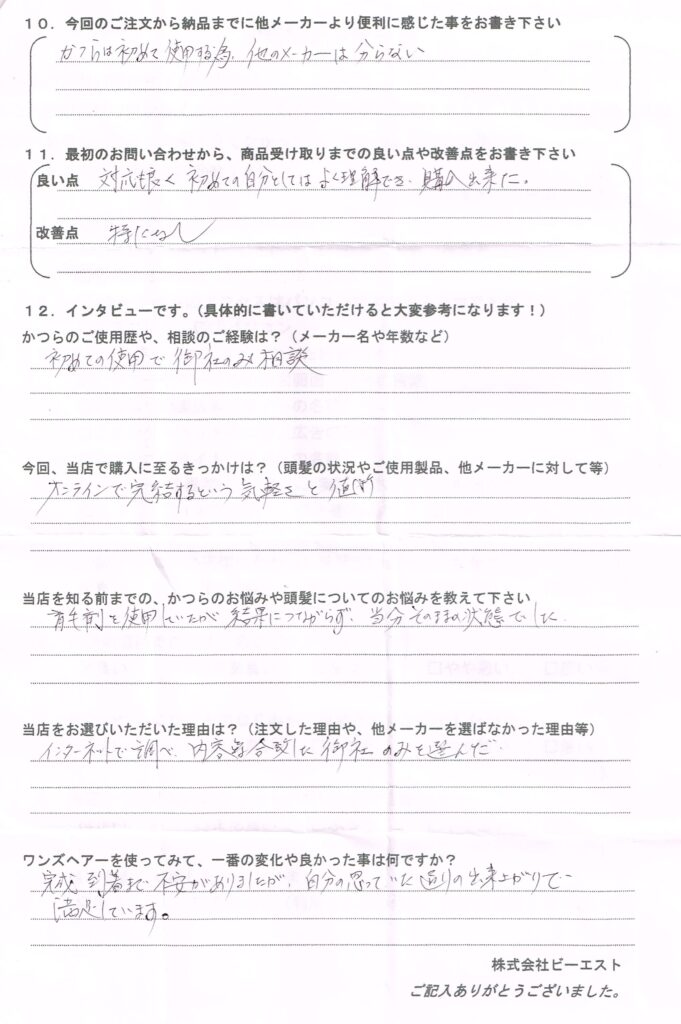 １０．今回のご注文から納品までに他メーカーより便利に感じた事をお書き下さい
かつらは初めて使用する為、他のメーカーは分らない
１１．最初のお問い合わせから、商品受け取りまでの良い点や改善点をお書き下さい
良い点　対応良く初めての自分としてはよく理解でき、購入出来た。
改善点　特になし
１２．インタビューです。（具体的に書いていただけると大変参考になります！）
かつらのご使用歴や、相談のご経験は？（メーカー名や年数など）
初めての使用で御社のみ相談
今回、当店で購入に至るきっかけは？（頭髪の状況やご使用製品、他メーカーに対して等）
オンラインで完結するという気軽さと値段
当店を知る前までの、かつらのお悩みや頭髪についてのお悩みを教えて下さい
育毛剤を使用していたが結果につながらず、当分そのままの状態でした。
当店をお選びいただいた理由は？（注文した理由や、他メーカーを選ばなかった理由等）
インターネットで調べ、内容合致した御社のみを選んだ。
ワンズヘアーを使ってみて、一番の変化や良かった事は何ですか？
完成到着まで不安がありましたが、自分の思っていた通りの出来上がりで
満足しています。
株式会社ビーエスト
ご記入ありがとうございました。